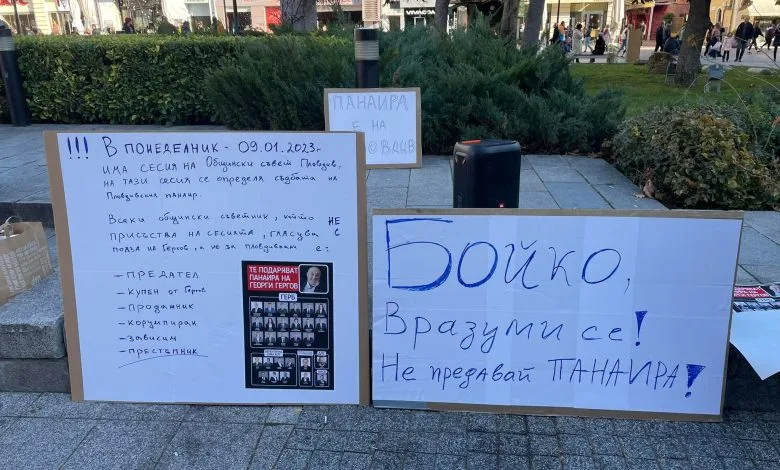 ПАНАИРА
Е НА
!!! В ПОНЕДЕЛНИК - 09.01.2023г
ИМА СЕСИЯ НА Общински съвет Пловдив,
НА ТАЗИ СЕСИЯ СЕ ОПРЕДЕЛЯ СЪДБАТА НА
Пловдивския панаир.
Всеки общински съветник, който НЕ
присъства на сесията, гласува в
полза на Гергов, а не за пловдивчани е:
- ПРЕДАТЕЛ
- Купен от Гергов
- Продажник
- Корумпиран
- Зависим
- ПРЕСТЪПНИК
ТЕ ПОДАРЯВАТ
ПАНАИРА НА
ГЕОРГИ ГЕРГОВ
ГЕРБ
Бойко,
Вразуми се!
Не предавай ПАНАИРА!